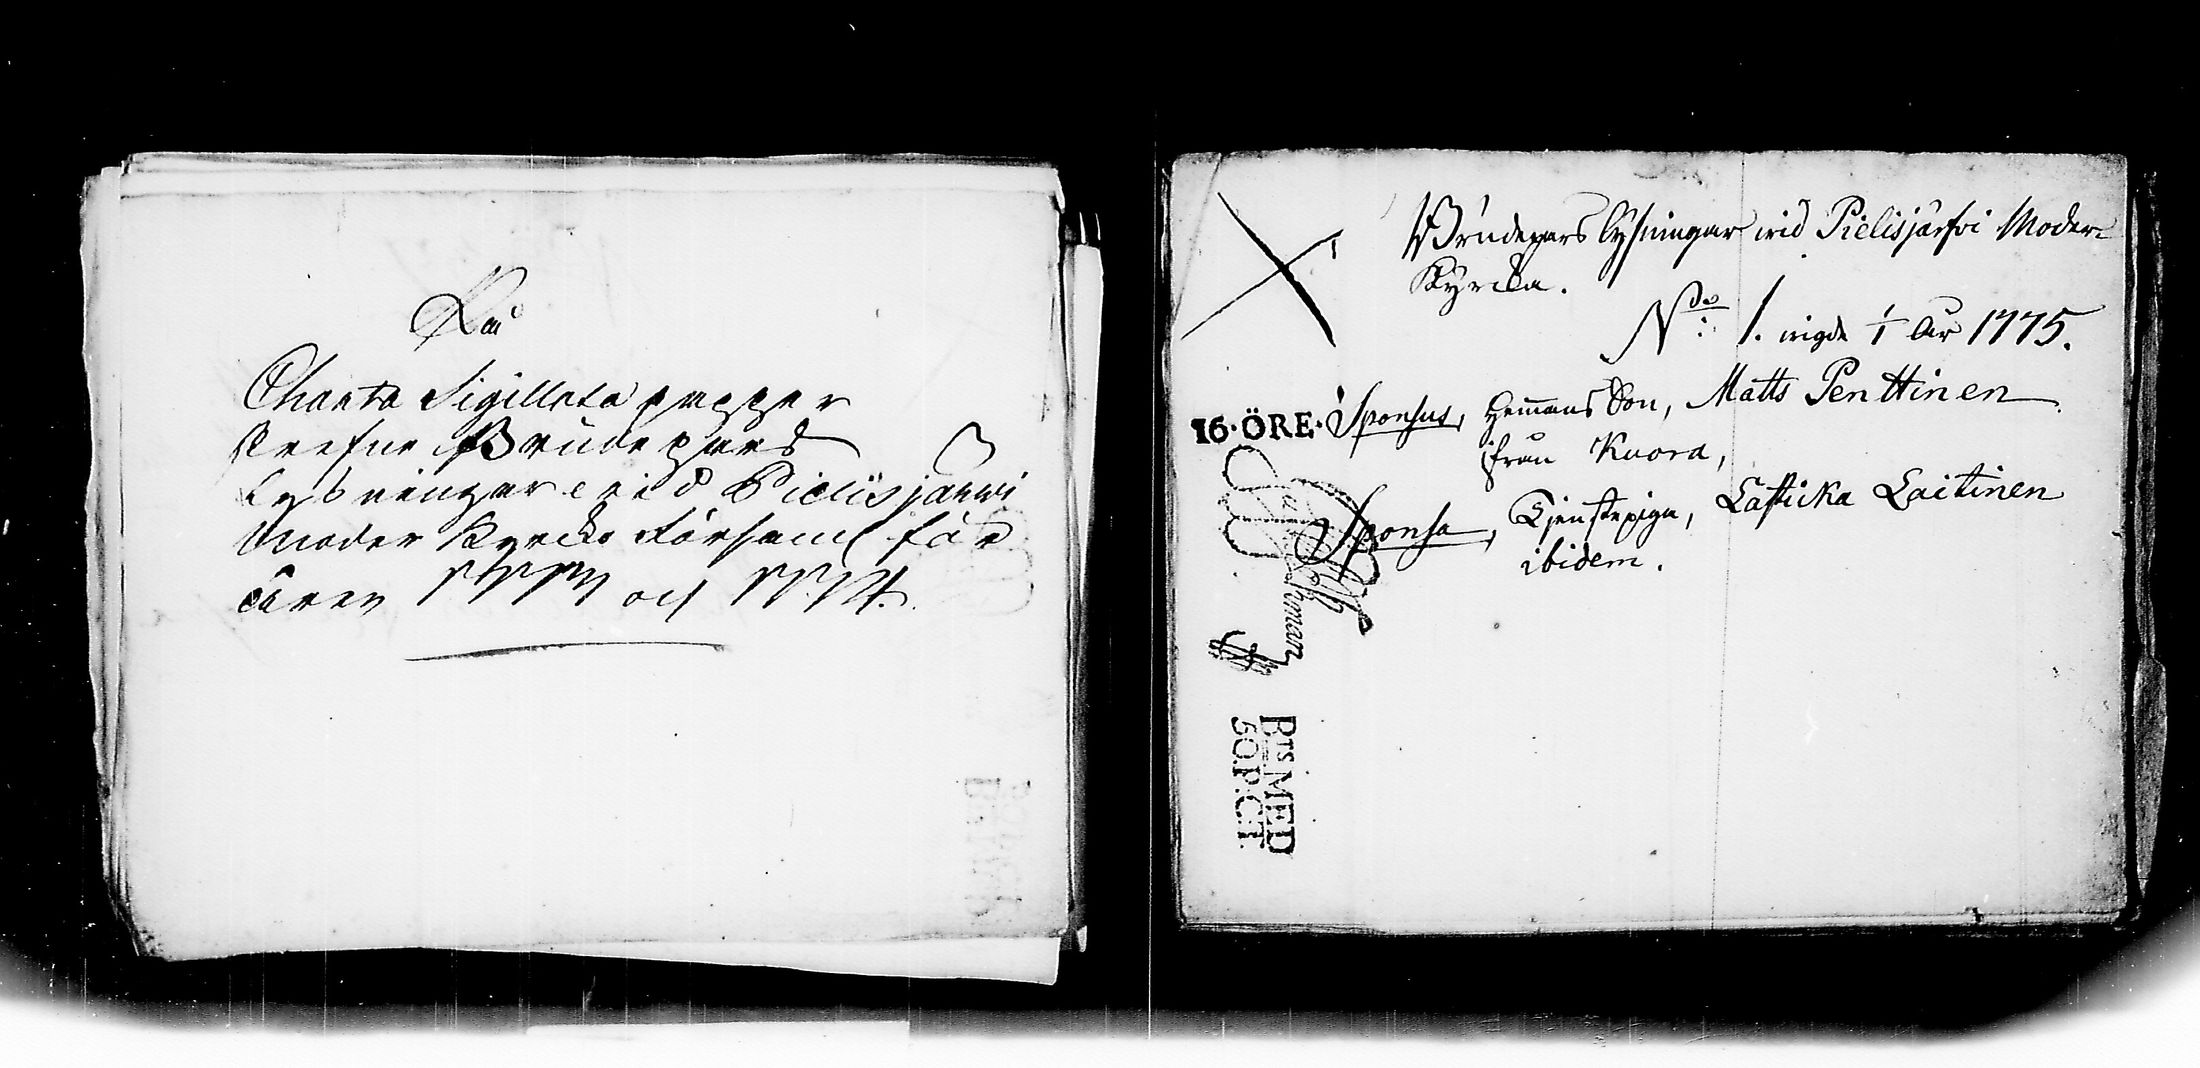 På
Charta Sigillata papper
skrefne Brudepars
Lysningar vid Pielisjärwi
Moder Kyrcko Församl för
åren 1773 och 1774.
Brudepars lysningar vid Pielisjärfvi Moder=
Kyrcka.
No 1. vigde 1/1 år 1775.
16·ÖRE· Sponsus, Hemans Son, Matts Penttinen
ifrån Kuora,
Sponsa, Tjenstepiga, Caisa Laitinen
ibidem.
BTS MED
50.P:CT.